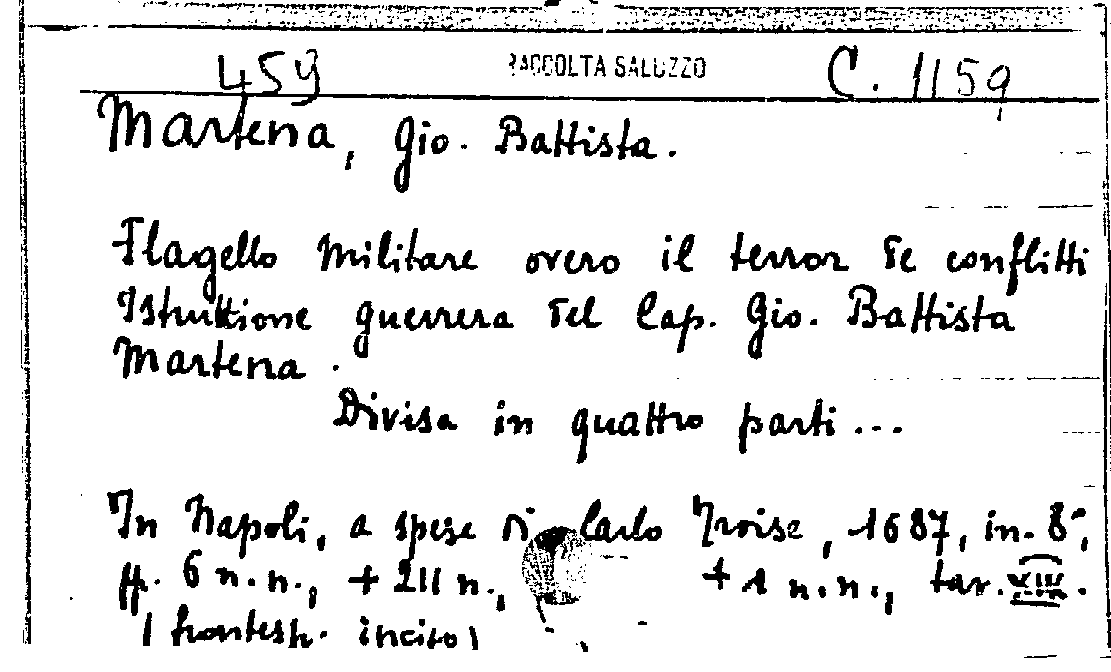 459 RACCOLTA SALUZZO C. 1159
Martena, Gio. Battista.
Flagello militare overo il terror de conflitti
Istruttione guerrera del Cap. Gio. Battista
Martena.
Divisa in quattro parti...
In Napoli, a spese di Carlo Troise, 1687, in-8°,
ff. 6 n.n., + 211 n., + 1 n.n., tav. XIX.
(frontesp. inciso)